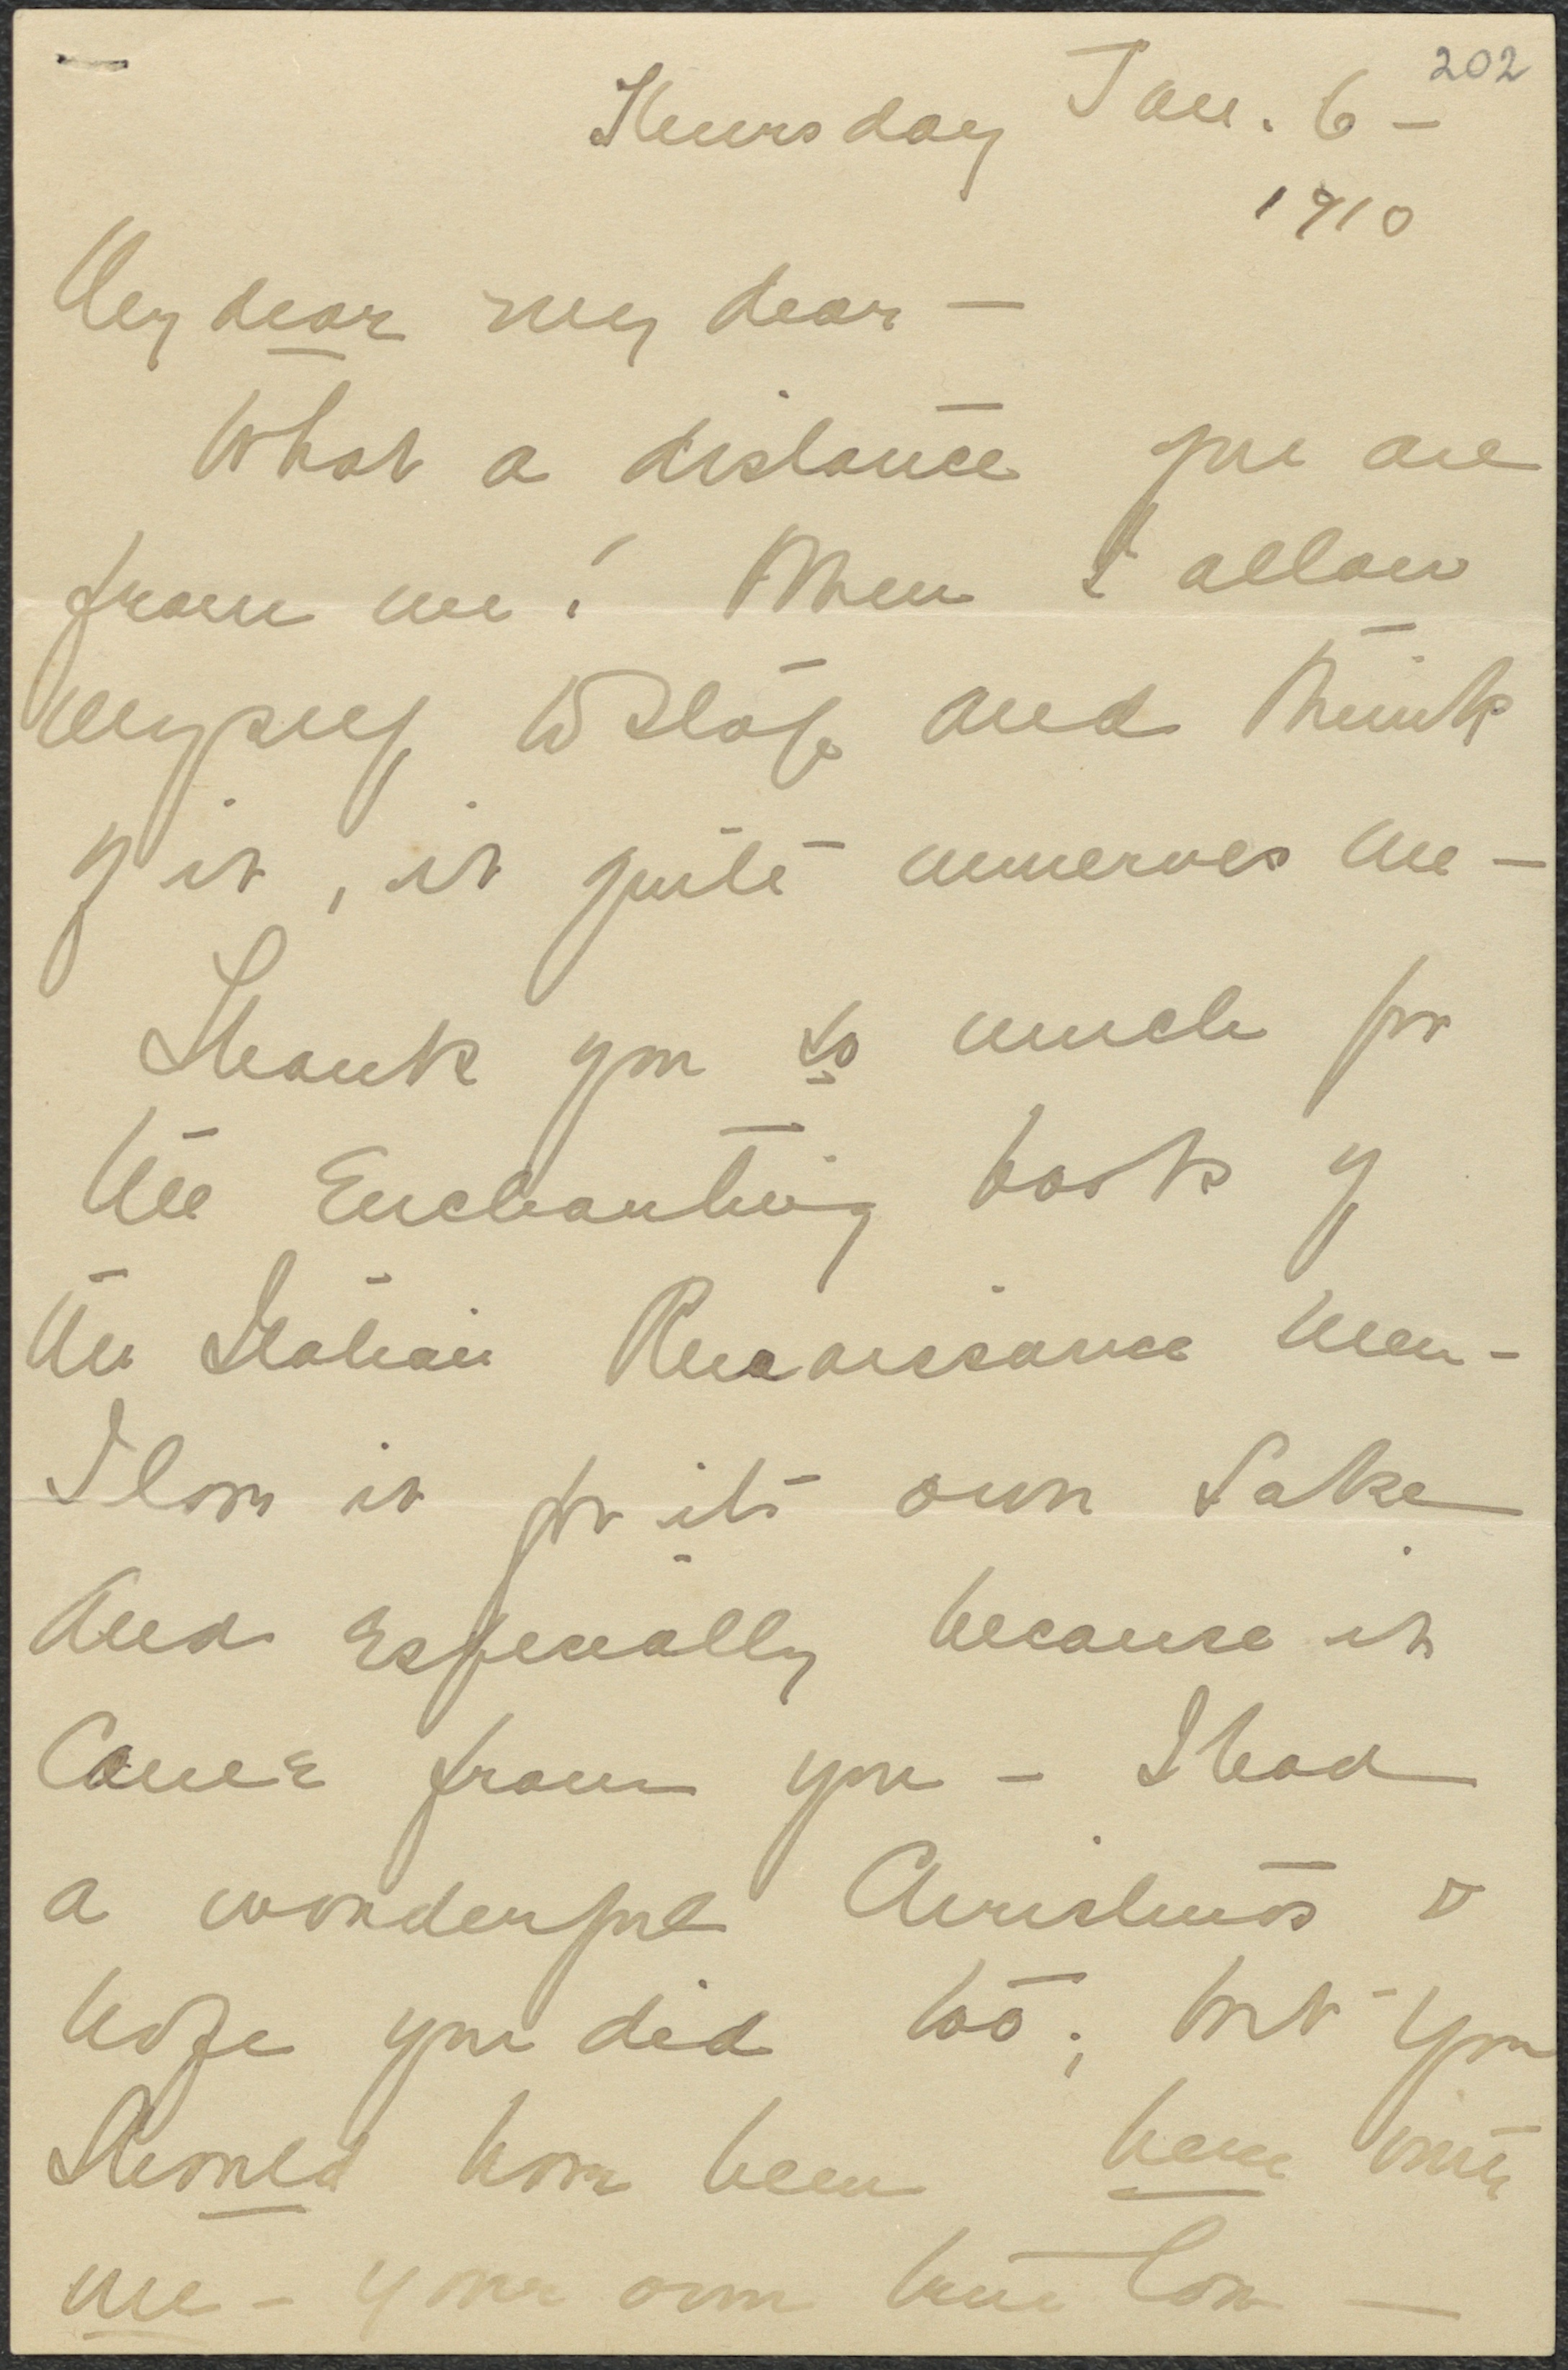 202
Thursday Jan. 6 -
1910
My dear my dear —
What a distance you are
from me! When I allow
myself to stop and think
of it, it quite unnerves me —
Thank you so much for
the Enchanting book of
the Italian Renaissance men -
I love it for its own sake
and especially because it
came from you - I had
a wonderful Christmas &
hope you did too; but you
should have been here with
me - your own true love —